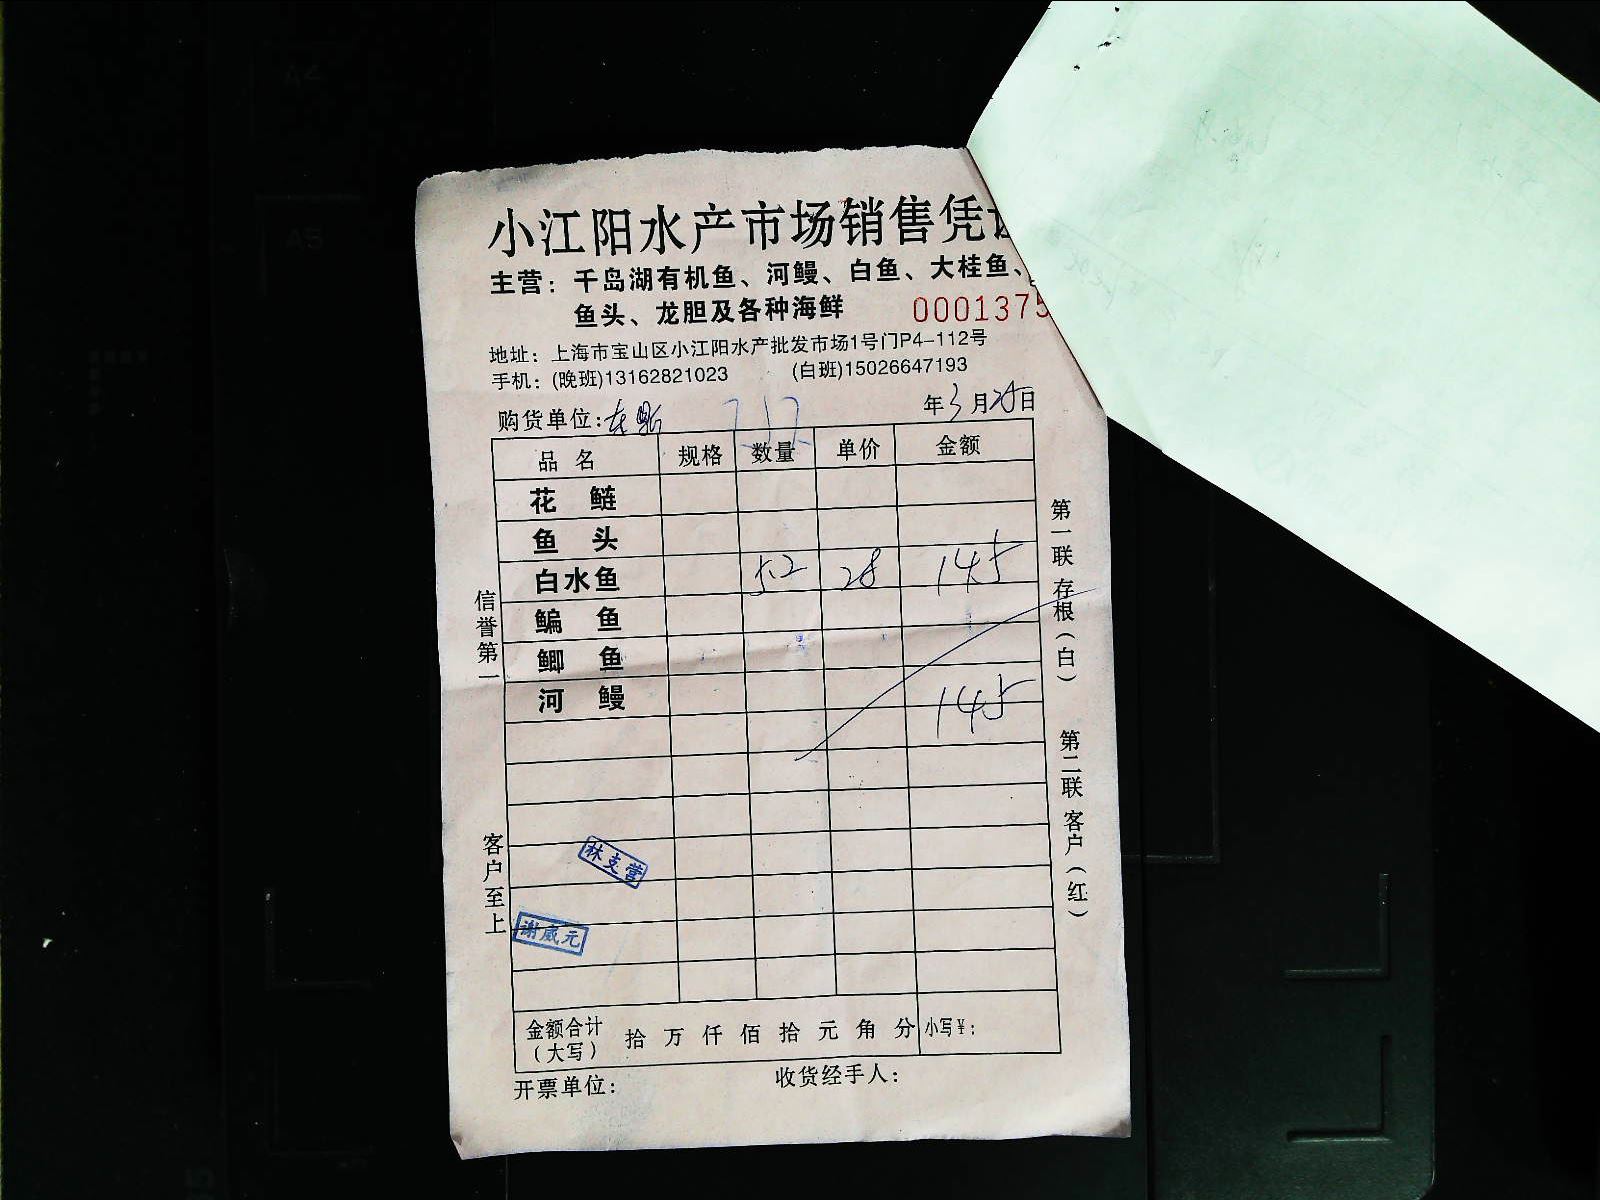 小江阳水产市场销售凭
主营：千岛湖有机鱼、河鳗、白鱼、大桂鱼、
鱼头、龙胆及各种海鲜 0001375
地址：上海市宝山区小江阳水产批发市场1号门P4-112号
手机：(晚班)13162821023 (白班)15026647193
购货单位: 年3月25日
品名 规格 数量 单价 金额
花鲢
鱼头
白水鱼 52 28 145
鳊鱼
鲫鱼
河鳗 145
信誉第一
客户至上
第一联 存根（白）
第二联 客户（红）
林支营
谢威元
金额合计（大写） 拾 万 仟 佰 拾 元 角 分 小写¥:
开票单位: 收货经手人: